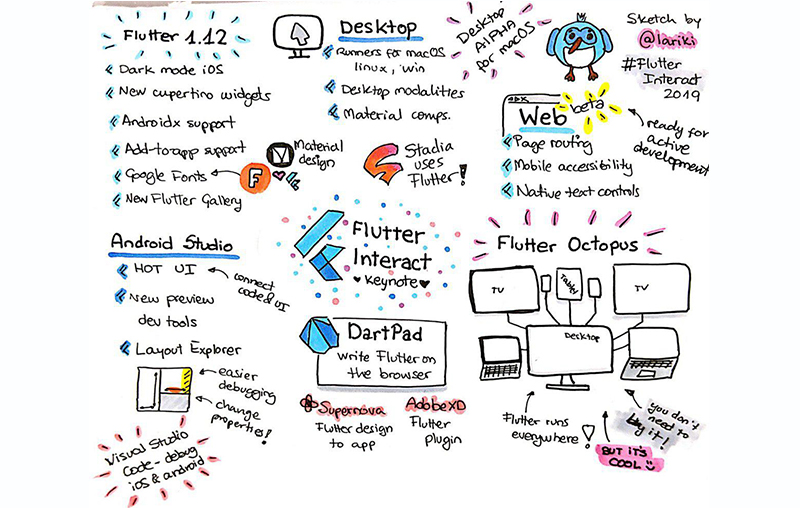 Flutter 1.12
Dark mode iOS
New cupertino widgets
Androidx support
Add-to-app support
Google Fonts
New Flutter Gallery
F
Material
design
Desktop
Runners for macOS
linux, win
Desktop modalities
Material comps.
Stadia
uses
Flutter!
Desktop
ALPHA
for macOS
Sketch by
@lariki
#Flutter
Interact
2019
Web
beta
Page routing
Mobile accessibility
Native text controls
ready for
active
development
Android Studio
HOT UI
connect
code & UI
New preview
dev tools
Layout Explorer
easier
debugging
change
properties!
Visual Studio
Code - debug
iOS & android
Flutter
Interact
Keynote
DartPad
write Flutter on
the browser
Supernova
Flutter design
to app
AdobeXD
Flutter
plugin
Flutter Octopus
TV
Tablet
TV
Desktop
Flutter runs
everywhere!
you don't
need to
buy it!
BUT IT'S
COOL